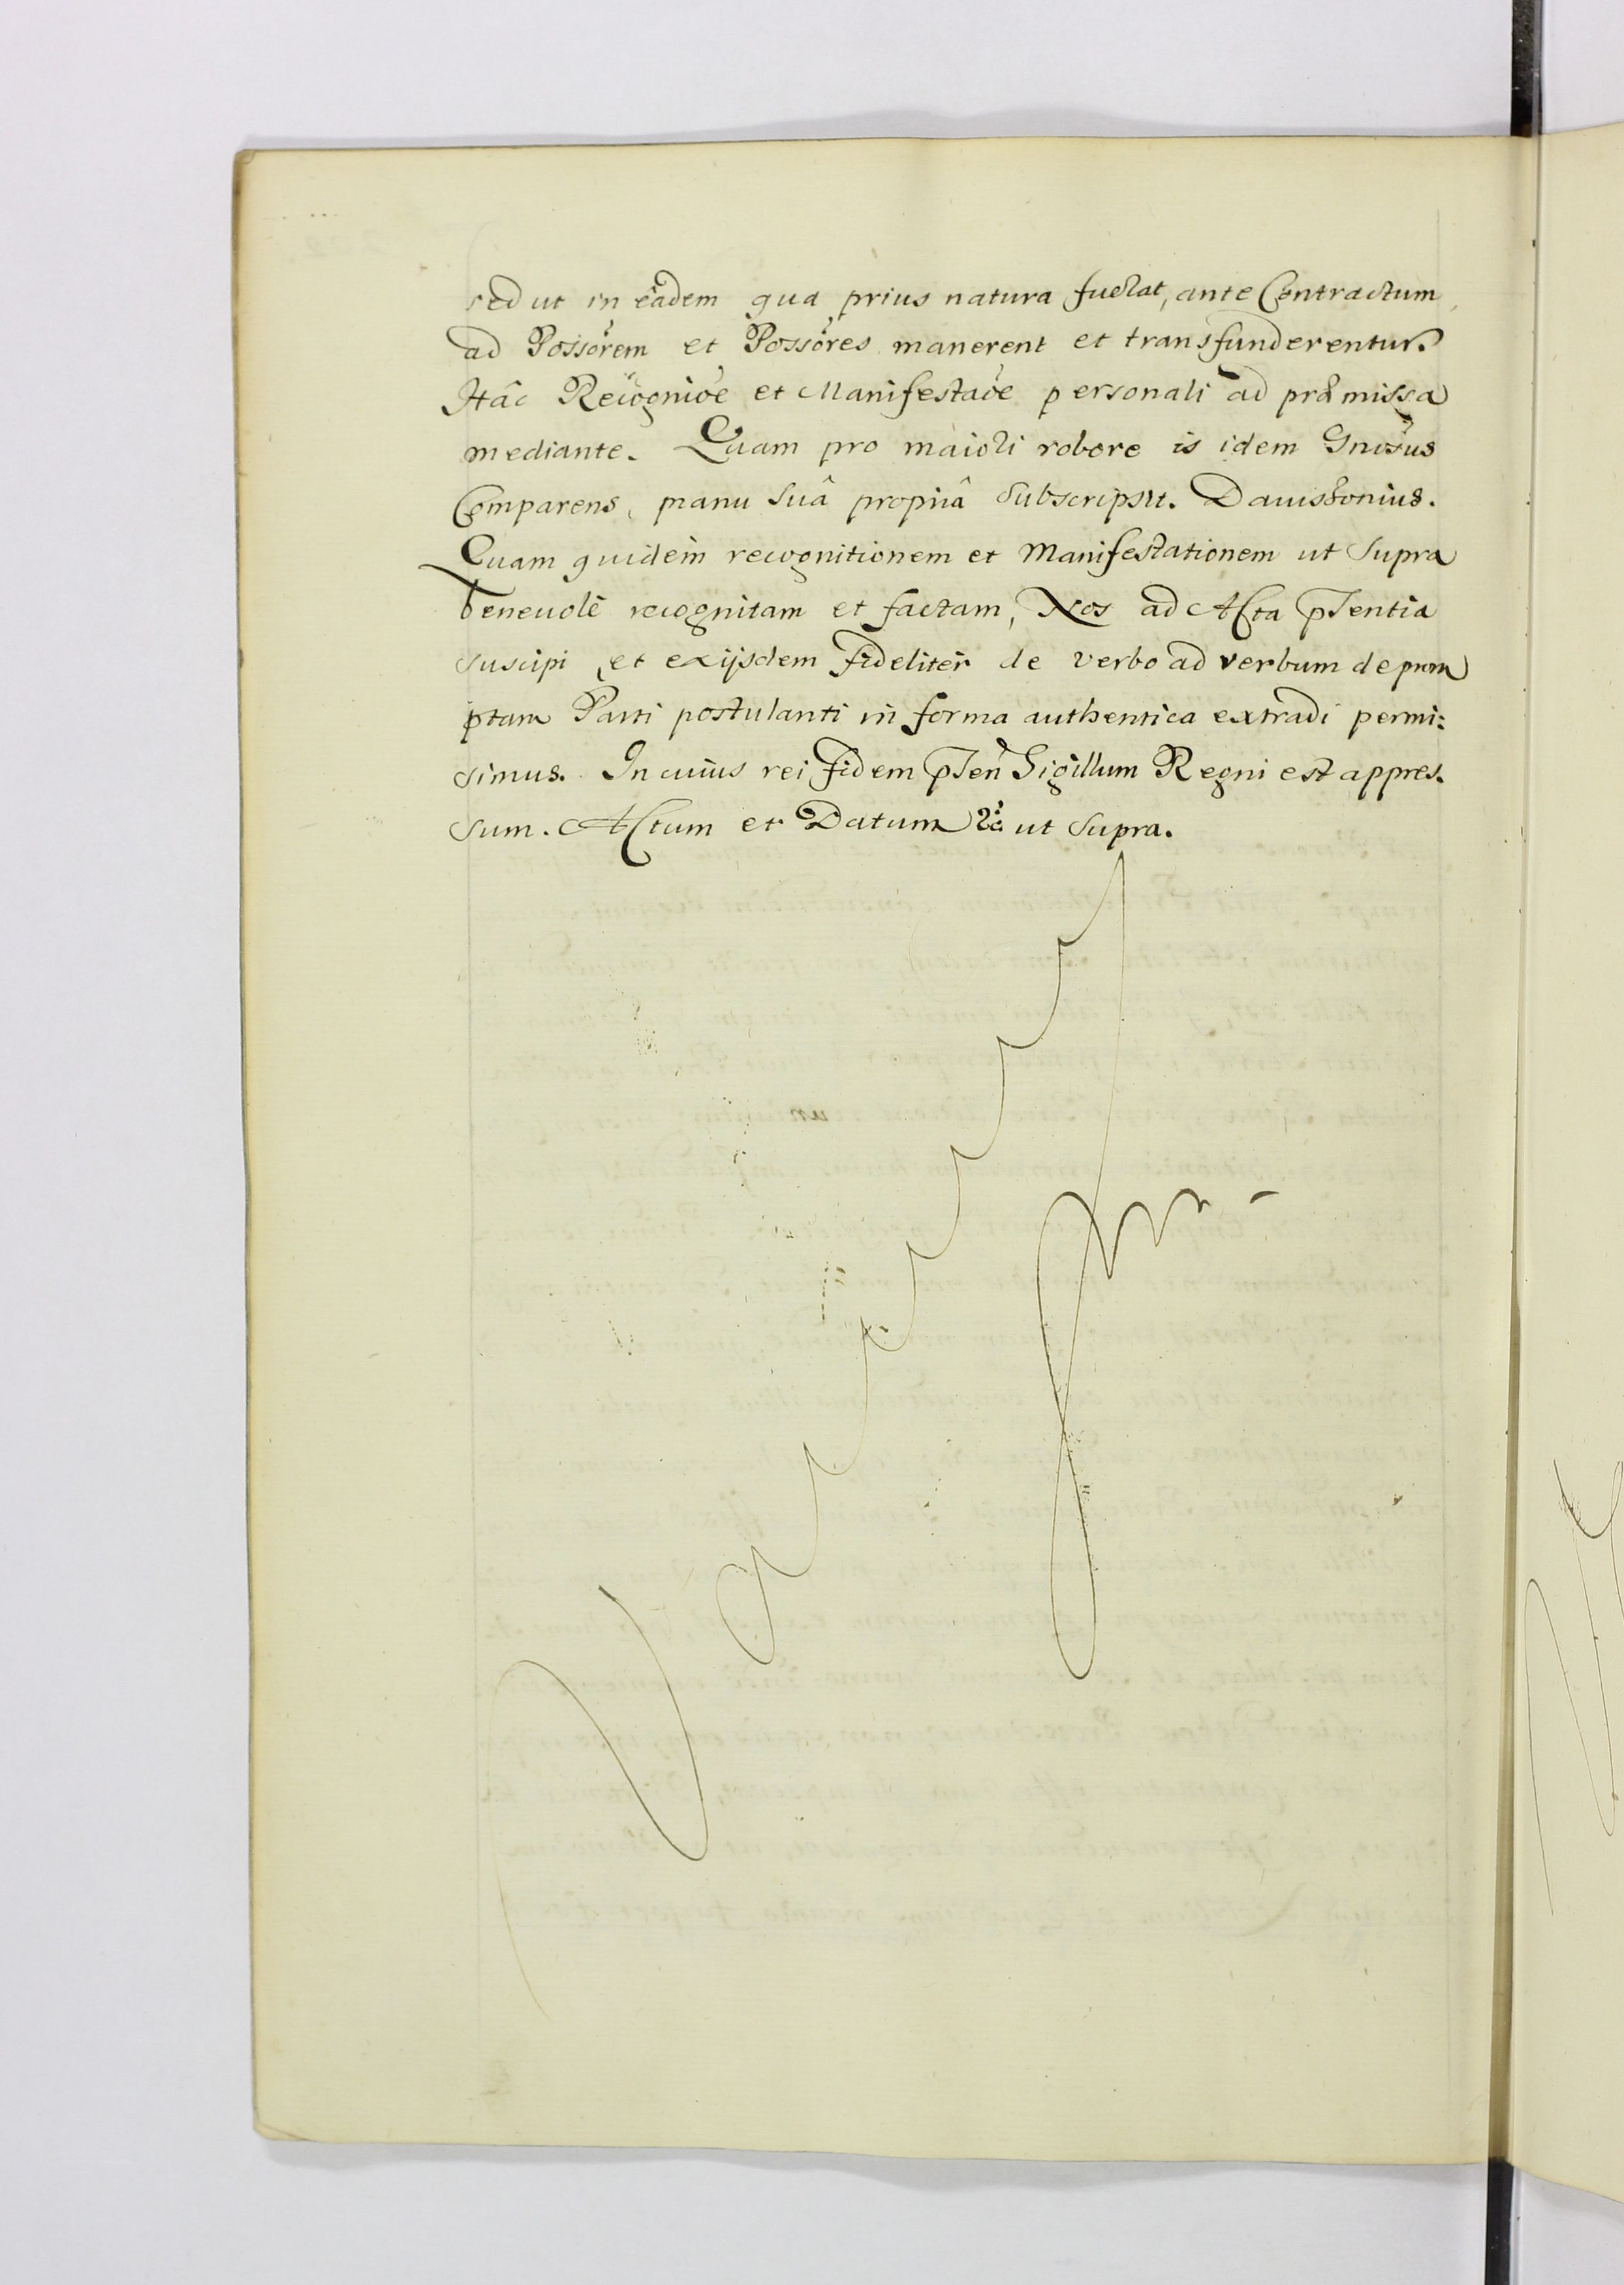 sed ut in eâdem qua prius natura fuerat, ante Contractum
ad Possõrem et Possõres manerent et transfunderentur.
Hâc Recognio͠e et Manifestao͠e personali ad præmissa
mediante. Quam pro maiori robore is idem Gnõsus
Comparens, manu suâ propriâ subscripsit.
Quam quidem recognitionem et Manifestationem ut supra
benevolè recognitam et factam, Nos ad Acta p͞sentia
suscipi et ex ijsdem fideliter de verbo ad verbum deprom
ptam Parti postulanti in forma authentica extradi permi:
simus. In cuius rei fidem p͞sen͠ Sigillum Regni est appres.
sum. Actum et Datum &c: ut supra.